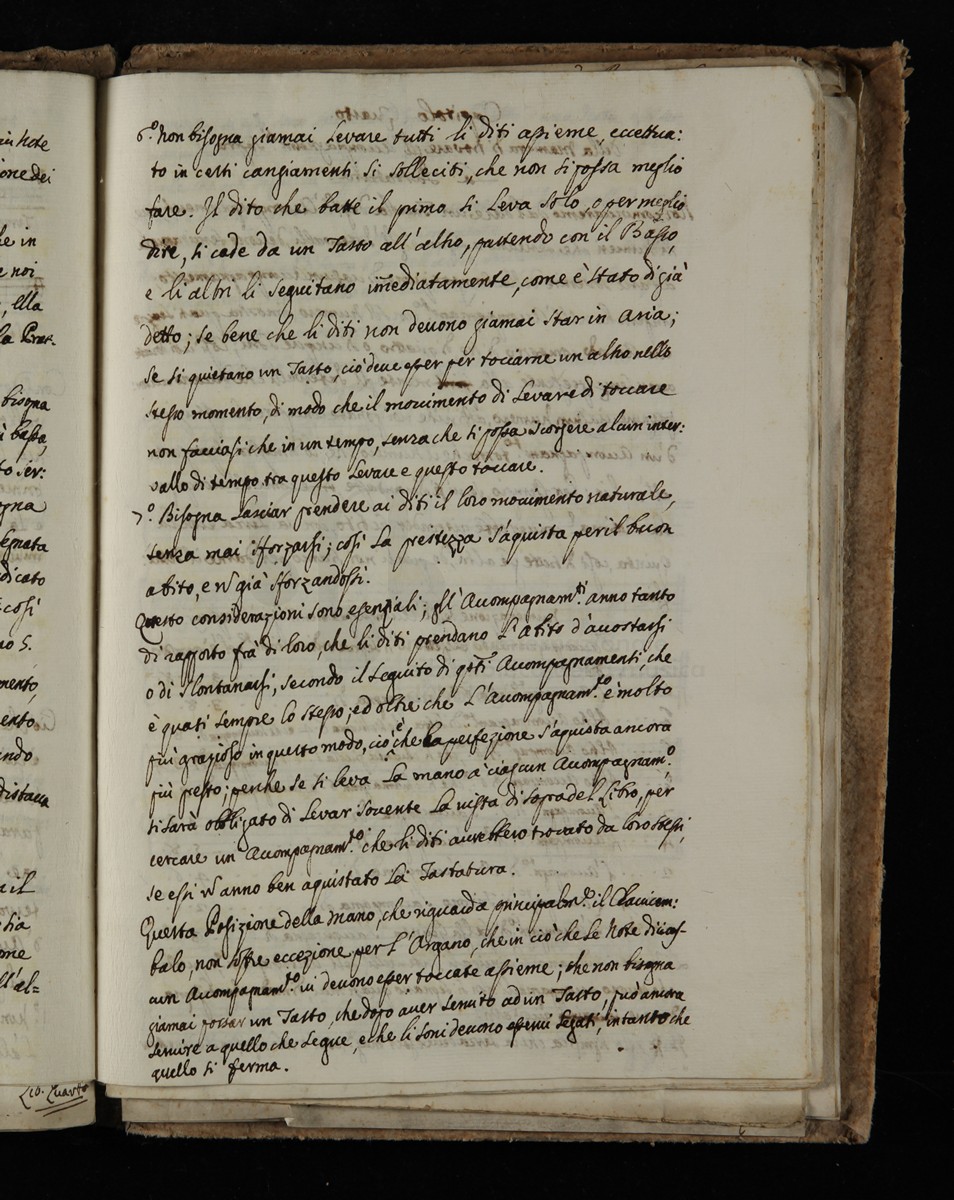 6.° non bisogna giamai Levare tutti li diti assieme eccettua:
to in certi cangiamenti si solleciti, che non si possa meglio
fare. Il dito che batte il primo si Leva solo, o per meglio
dire, si cede da un Tasto all'altro, partendo con il Basso,
e li altri li seguitano immediatamente, come è stato di già
detto; se bene che li diti non devono giamai star in aria;
se si quietano un Tasto, ciò deve esser per tociarne un altro nello
stesso momento, di modo che il movimento di Levare e di toccare
non facciasi che in un tempo, senza che si possa scorgere alcun inter:
vallo di tempo tra questo Levare e questo toccare.
7.° Bisogna Lasciar prendere ai diti il loro movimento naturale,
senza mai sforzarsi; così La prestezza s'aquista per il buon
abito, e n̄ già sforzandosi.
Queste considerazioni sono esenziali; gll' Acompagnam.ti anno tanto
di rapporto frà di loro, che li diti prendano L'abito d'acostarsi
o di slontanarsi, secondo il seguito di q̄sti Acompagnamenti, che
è quasi sempre lo stesso; ed oltre che L'Acompagnam.to è molto
più grazioso in questo modo, ciò è che la perfezione s'aquista ancora
più presto; perche se si leva La mano a ciascun Acompagnam.°
si sarà obbligato di Levar sovente La vista di sopra del Libro, per
cercare un Acompagnam.to che li diti avrebbero trovato da loro stessi,
se essi n̄ anno ben aquistato La Tastatura.
Questa Posizione della mano, che riguarda principalm.te il Clavicem:
balo, non soffre eccezione per L'Argano, che in ciò che Le Note di cias-
cun Acompagnam.to vi devono esser toccate assieme; che non bisogna
giamai passar un Tasto, che dopo aver servito ad un Tasto, può ancora
servire a quello che segue, e che li soni devono esservi Legati, intanto che
quello si ferma.
in Note
ione dei
he in
e noi
, Ella
la Prat-
bisogna
basta,
to ser:
ogna
segnata
dicato
così
no 5.
mento,
ento
ndo
distanza
il
sia
ome
ll'al=
Lio. Quarto